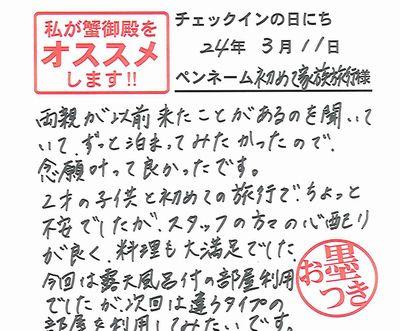 私が蟹御殿を
オススメ
します!!
チェックインの日にち
24年 3月 11日
ペンネーム 初めて家族旅行様
両親が以前来たことがあるのを聞いて
いて、ずっと泊まってみたかったので、
念願叶って良かったです。
2才の子供と初めての旅行で、ちょっと
不安でしたが、スタッフの方々の心配り
が良く、料理も大満足でした。
今回は露天風呂付の部屋利用
でしたが、次回は違うタイプの
部屋を利用してみたいです
お墨つき